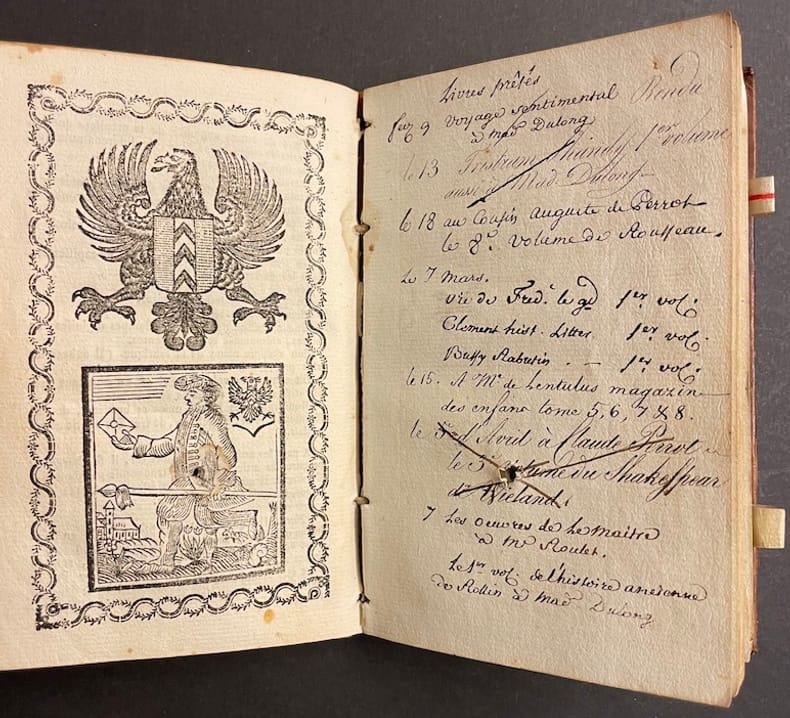 Livres prêtés
fev 9 Voyage sentimental Rendu
à mad Dulong
le 13 Tristram Shandy 1er volume
aussi à Mad. Dulong
le 18 au Cousin auguste de Perrot
le 8e. volume de Rousseau.
Le 7 Mars.
vie de Fred. le gd 1er vol.
Clement hist. Litter. 1er vol.
Bussy Rabutin — 1er vol.
le 15. A Mr. de Lentulus magazin
des enfans tome 5, 6, 7 & 8.
le d'Avril à Claude Perrot
le volume du Shakespear
de Wieland.
7 Les oeuvres de Le maitre
à Mr Roulet.
Le 1er vol. de l'histoire ancienne
de Rollin à mad Dulong